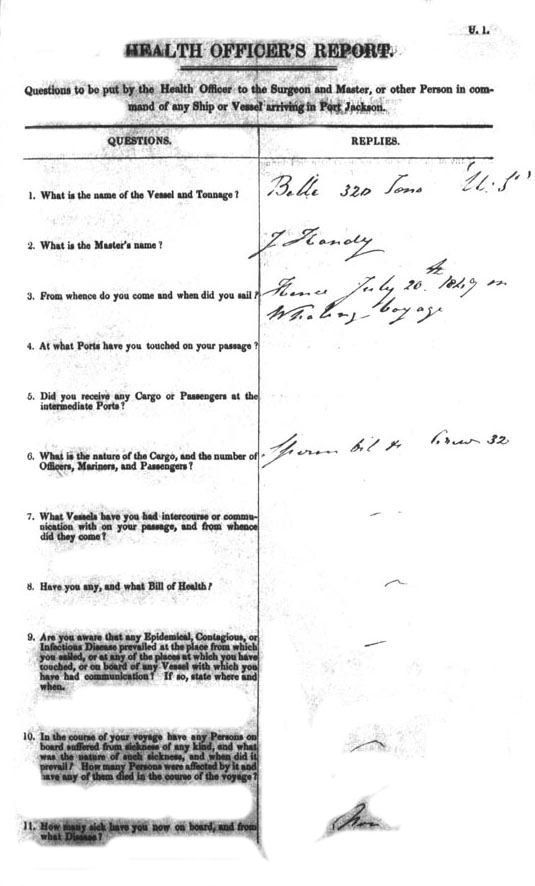 U. 1.
HEALTH OFFICER'S REPORT.
Questions to be put by the Health Officer to the Surgeon and Master, or other Person in com-
mand of any Ship or Vessel arriving in Port Jackson.
QUESTIONS. REPLIES.
1. What is the name of the Vessel and Tonnage? Belle 320 Tons "U. S"
2. What is the Master's name? J Handy
3. From whence do you come and when did you sail? Hence July 20th 1849 on
Whaling Voyage
4. At what Ports have you touched on your passage?
5. Did you receive any Cargo or Passengers at the
intermediate Ports?
6. What is the nature of the Cargo, and the number of Sperm Oil & Crew 32
Officers, Mariners, and Passengers?
7. What Vessels have you had intercourse or commu-
nication with on your passage, and from whence
did they come?
8. Have you any, and what Bill of Health?
9. Are you aware that any Epidemical, Contagious, or
Infectious Disease prevailed at the place from which
you sailed, or at any of the places at which you have
touched, or on board of any Vessel with which you
have had communication? If so, state where and
when.
10. In the course of your voyage have any Persons on
board suffered from sickness of any kind, and what
was the nature of such sickness, and when did it
prevail? How many Persons were affected by it and
have any of them died in the course of the voyage?
11. How many sick have you now on board, and from
what Disease?